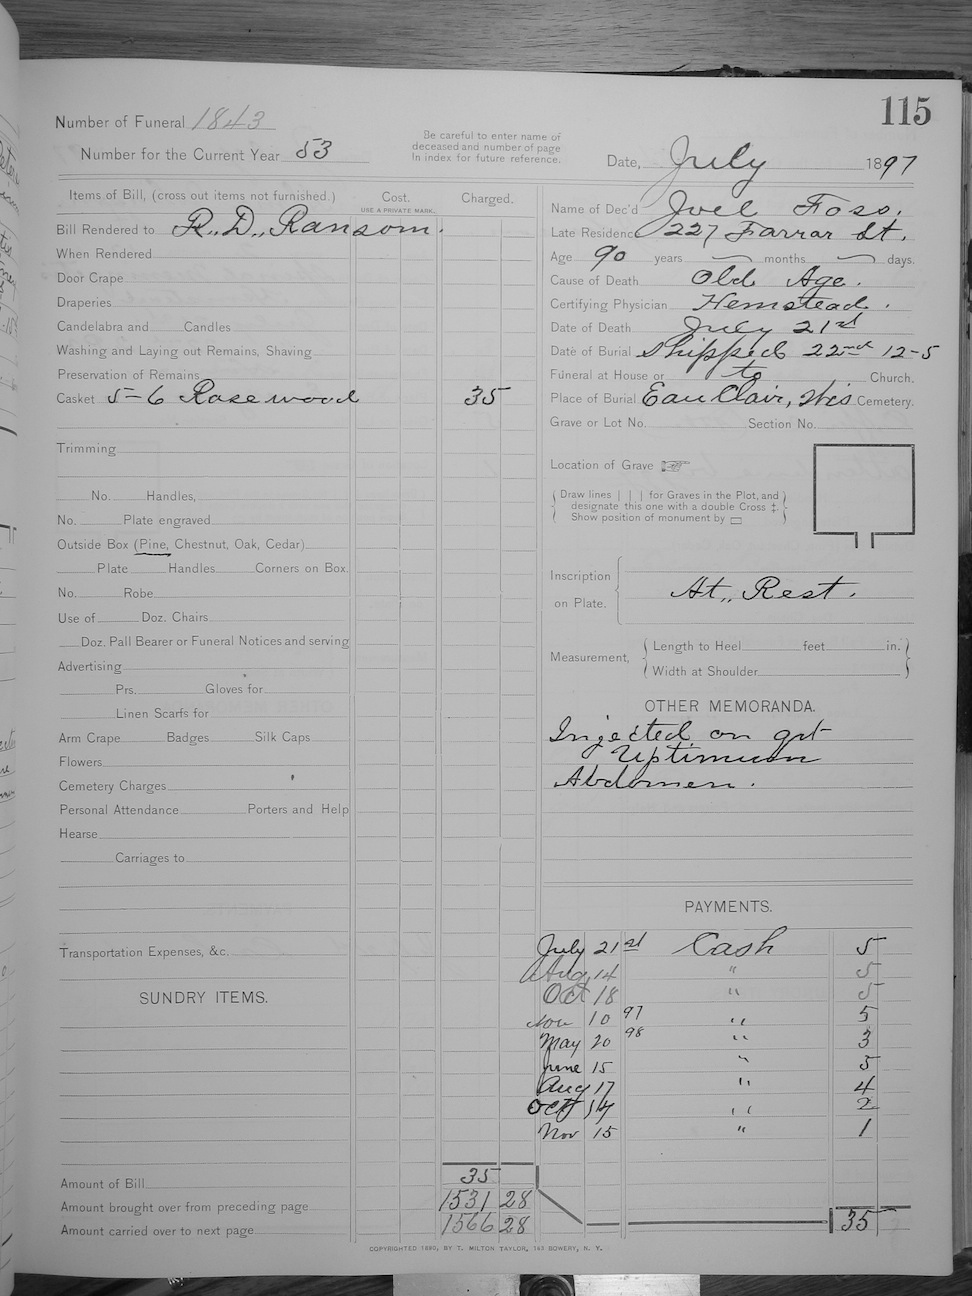 115
Number of Funeral 1843
Number for the Current Year 53
Be careful to enter name of
deceased and number of page
In index for future reference.
Date, July 1897
Items of Bill, (cross out items not furnished.) Cost. Charged.
USE A PRIVATE MARK.
Bill Rendered to R. D. Ransom.
When Rendered
Door Crape
Draperies
Candelabra and Candles
Washing and Laying out Remains, Shaving
Preservation of Remains
Casket 5-6 Rosewood 35
Trimming
No. Handles,
No. Plate engraved
Outside Box (Pine, Chestnut, Oak, Cedar)
Plate Handles Corners on Box.
No. Robe
Use of Doz. Chairs
Doz. Pall Bearer or Funeral Notices and serving
Advertising
Prs. Gloves for
Linen Scarfs for
Arm Crape Badges Silk Caps
Flowers
Cemetery Charges
Personal Attendance Porters and Help
Hearse
Carriages to
Transportation Expenses, &c.
SUNDRY ITEMS.
Amount of Bill 35
Amount brought over from preceding page 1531 28
Amount carried over to next page 1566 28
Name of Dec'd Joel Foss.
Late Residence 227 Farrar St.
Age 90 years months days.
Cause of Death Old Age.
Certifying Physician Hemstead.
Date of Death July 21st
Date of Burial Shipped 22nd 12-5
Funeral at House or to Church,
Place of Burial Eau Clair, Wis Cemetery.
Grave or Lot No. Section No.
Location of Grave
Draw lines | | | for Graves in the Plot, and
designate this one with a double Cross ‡.
Show position of monument by ▭
Inscription
on Plate.
At,, Rest.
Measurement,
Length to Heel feet in.
Width at Shoulder
OTHER MEMORANDA.
Injected on qrt
Uptimum
Abdomen.
PAYMENTS.
July 21st Cash 5
Aug 14 " 5
Oct 18 " 5
Nov 10 97 " 5
May 20 98 " 3
June 15 " 5
Aug 17 " 4
Oct 14 " 2
Nov 15 " 1
35
COPYRIGHTED 1880, BY T. MILTON TAYLOR, 143 BOWERY, N. Y.